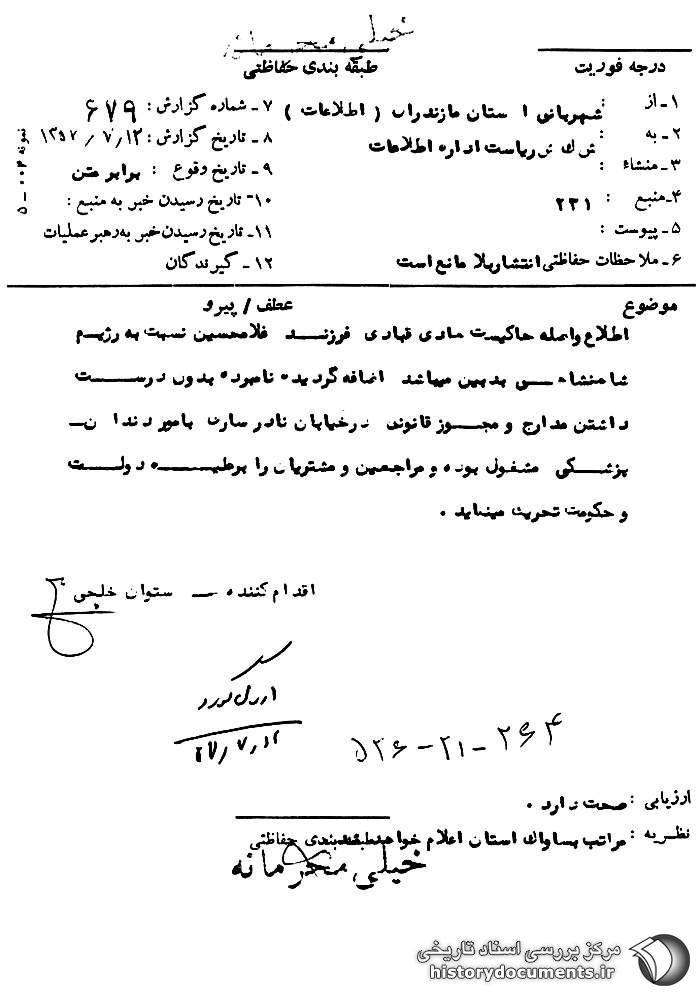 خیلی محرمانه
طبقه بندی حفاظتی
درجه فوریت
۱- از : شهربانی استان مازندران ( اطلاعات )
۲- به : ش ك ش ریاست اداره اطلاعات
۳- منشاء :
۴- منبع : ۲۳۱
۵- پیوست :
۶- ملاحظات حفاظتی انتشار بلا مانع است
۷- شماره گزارش : ۶۷۹
۸- تاریخ گزارش : ۱۳۵۷/۷/۱۲
۹- تاریخ وقوع : برابر متن
۱۰- تاریخ رسیدن خبر به منبع :
۱۱- تاریخ رسیدن خبر به رهبر عملیات
۱۲- گیرندگان
نمونه ۰۰۴ - ۵
موضوع
عطف / پیرو
اطلاع واصله حاکیست هادی قبادی فرزند غلامحسین نسبت به رژیم
شاهنشاهی بدبین میباشد اضافه گردیده نامبرده بدون در دست
داشتن مدارج و مجوز قانونی در خیابان نادر ساری بامر دندان
پزشکی مشغول بوده و مراجعین و مشتریان را برعلیه دولت
و حکومت تحریک مینماید .
اقدام کننده - ستوان خلجی
۵۲۶-۲۱-۲۶۴
ارزیابی : صحت دارد .
نظریه : مراتب بساواك استان اعلام خواهد شد
طبقه بندی حفاظتی
خیلی محرمانه
مرکز بررسی اسناد تاریخی
historydocuments.ir